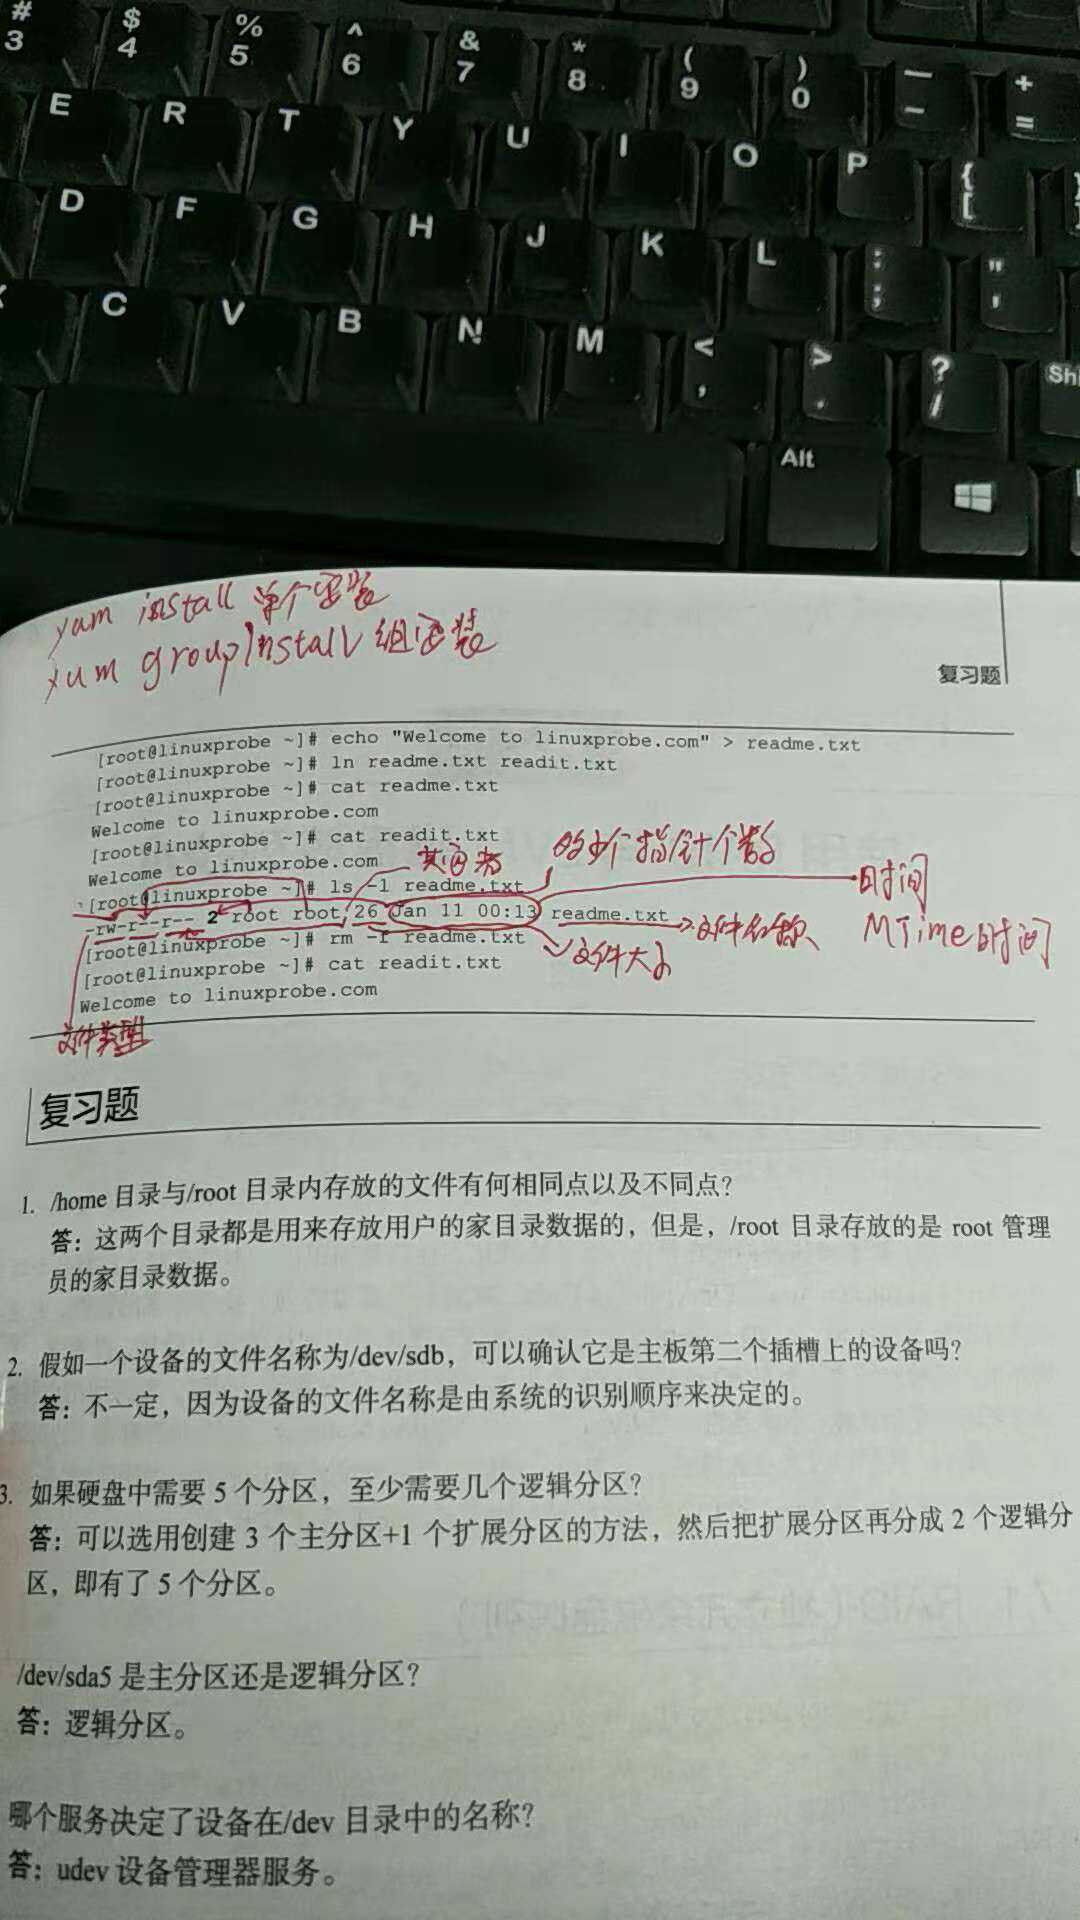 # $ % ^ & * ( ) — +
3 4 5 6 7 8 9 0 - =
E R T Y U I O P { [
D F G H J K L : ; " '
C V B N M < , > . ? / Shi
Alt
yum install 单个安装
yum groupInstall 组安装
复习题
[root@linuxprobe ~]# echo "Welcome to linuxprobe.com" > readme.txt
[root@linuxprobe ~]# ln readme.txt readit.txt
[root@linuxprobe ~]# cat readme.txt
Welcome to linuxprobe.com
[root@linuxprobe ~]# cat readit.txt
Welcome to linuxprobe.com
[root@linuxprobe ~]# ls -l readme.txt
-rw-r--r-- 2 root root 26 Jan 11 00:13 readme.txt
[root@linuxprobe ~]# rm -f readme.txt
[root@linuxprobe ~]# cat readit.txt
Welcome to linuxprobe.com
指针个数
时间
文件名称
MTime时间
文件大小
文件类型
复习题
1. /home 目录与/root 目录内存放的文件有何相同点以及不同点？
答：这两个目录都是用来存放用户的家目录数据的，但是，/root 目录存放的是 root 管理
员的家目录数据。
2. 假如一个设备的文件名称为/dev/sdb，可以确认它是主板第二个插槽上的设备吗？
答：不一定，因为设备的文件名称是由系统的识别顺序来决定的。
3. 如果硬盘中需要 5 个分区，至少需要几个逻辑分区？
答：可以选用创建 3 个主分区+1 个扩展分区的方法，然后把扩展分区再分成 2 个逻辑分
区，即有了 5 个分区。
/dev/sda5 是主分区还是逻辑分区？
答：逻辑分区。
哪个服务决定了设备在/dev 目录中的名称？
答：udev 设备管理器服务。